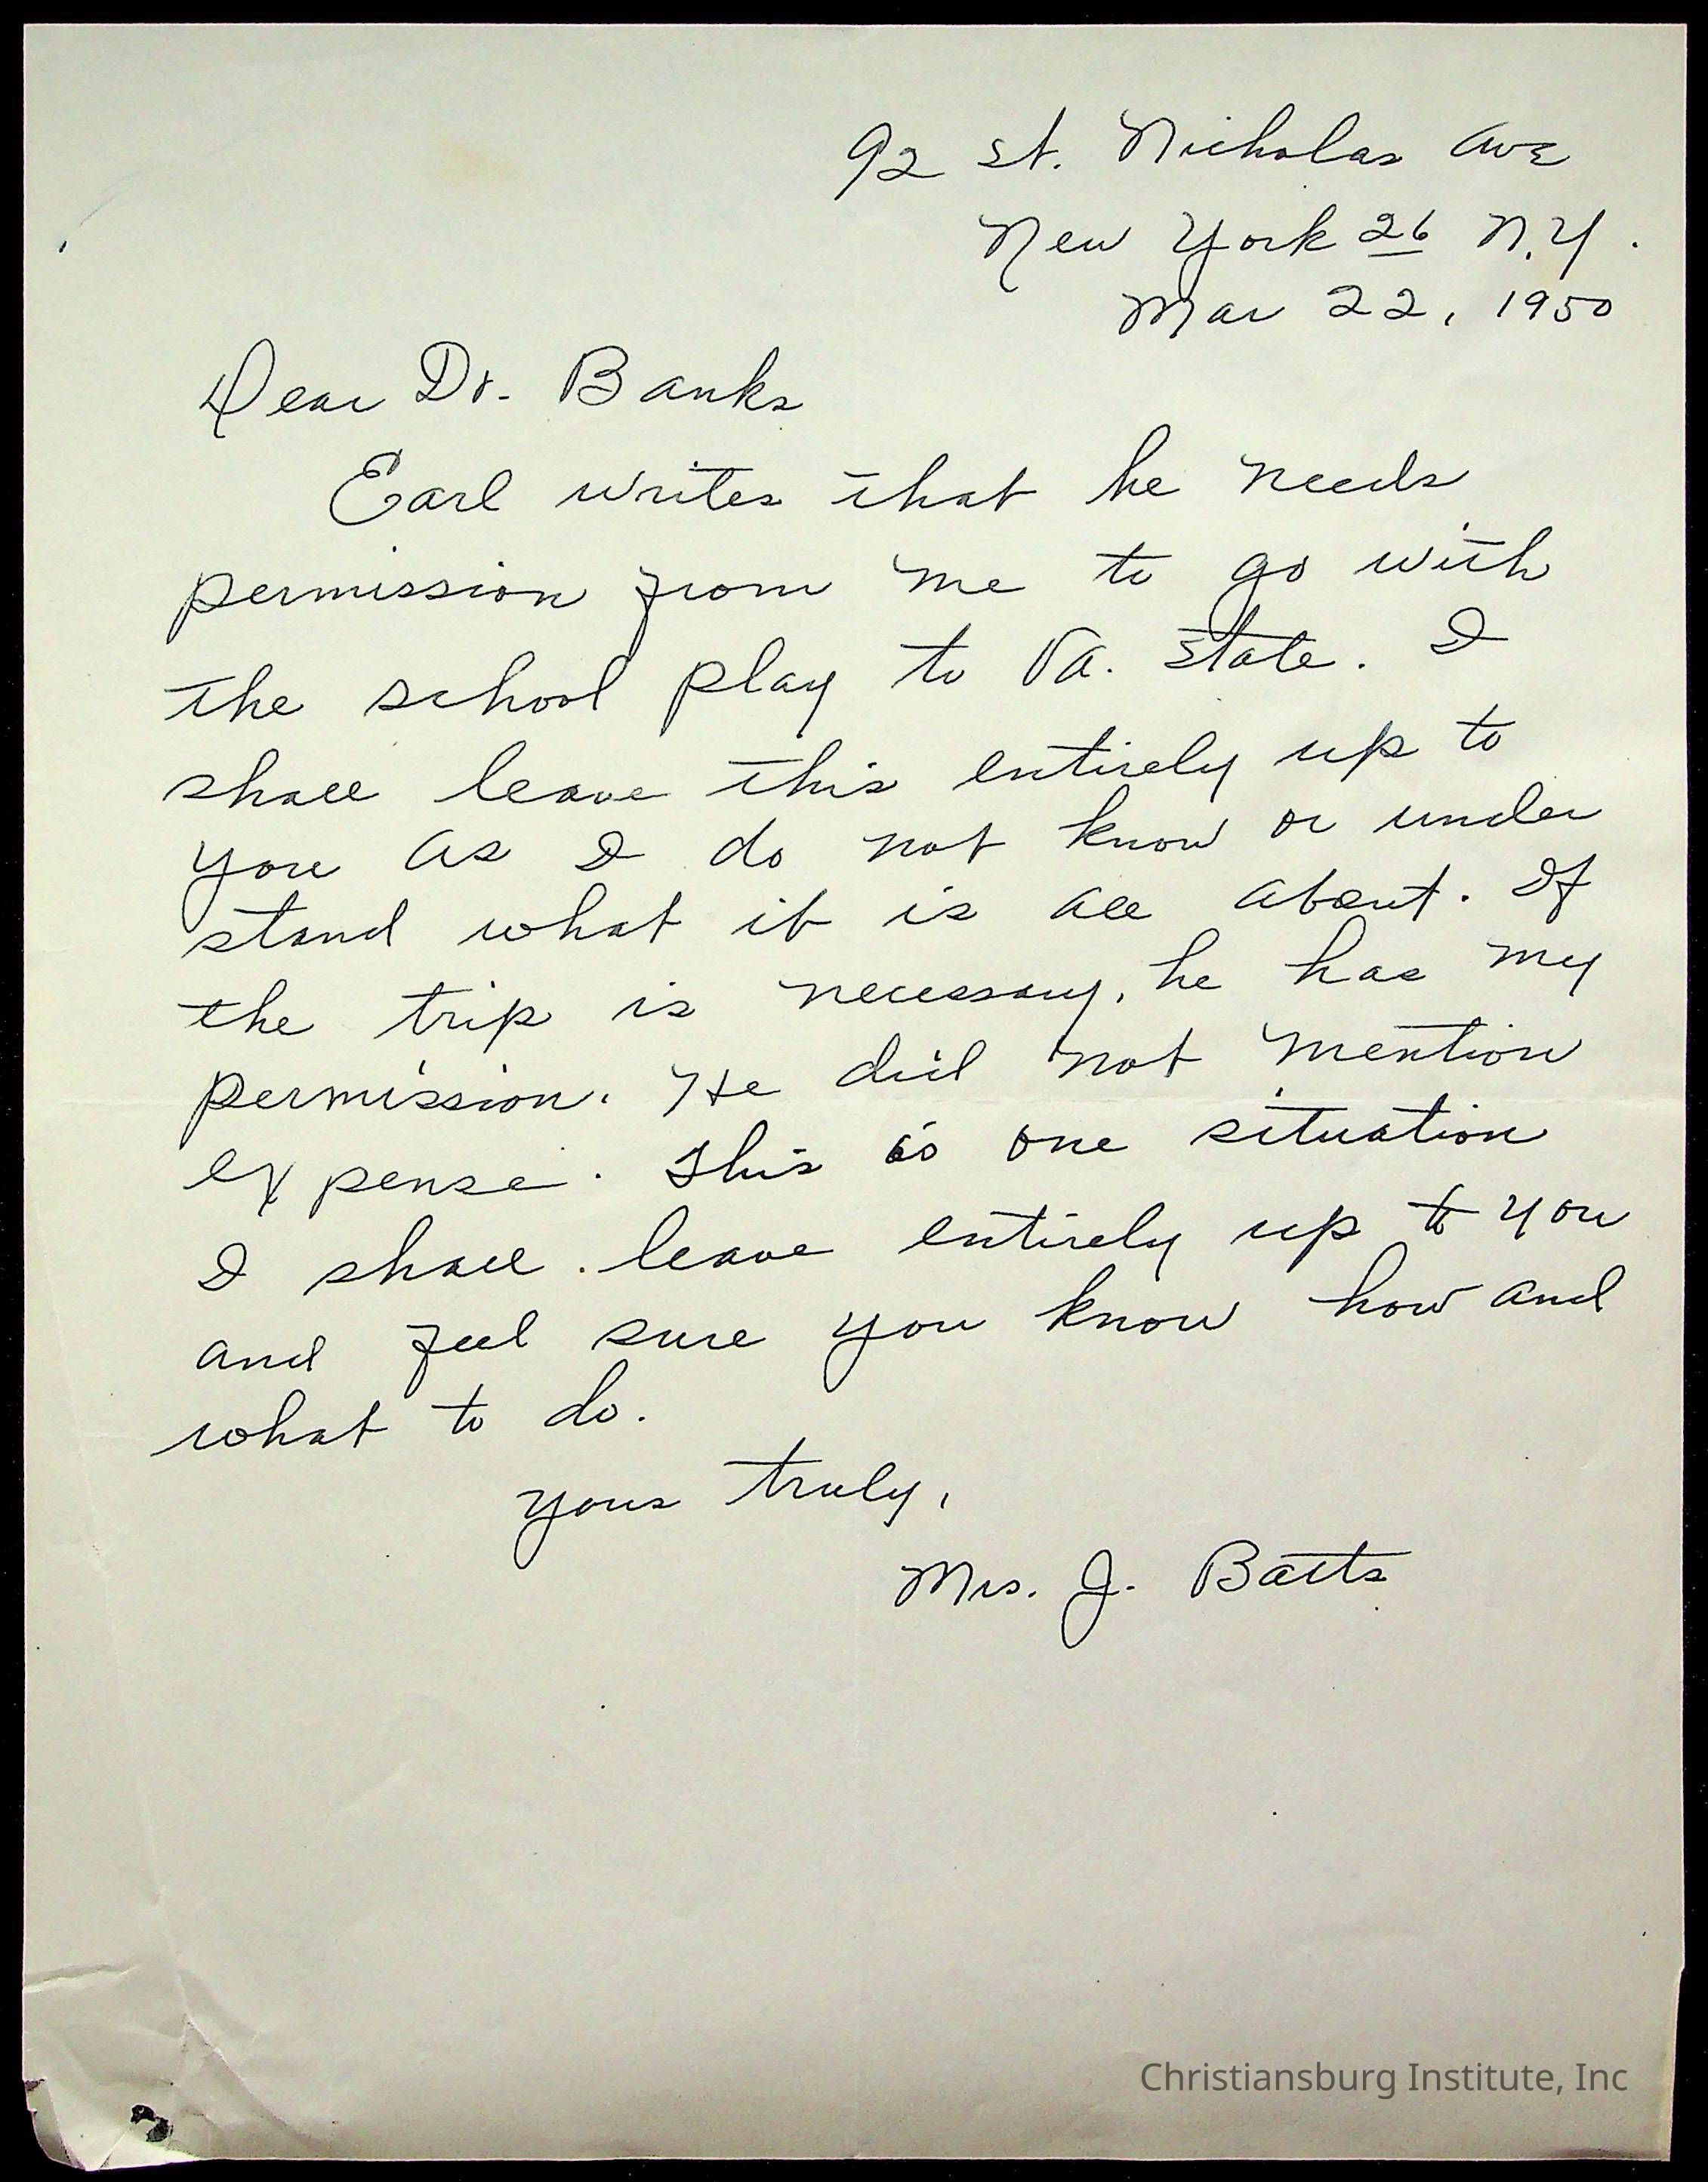 92 St. Nicholas Ave
New York 26 N.Y.
Mar 22, 1950
Dear Dr. Banks
Earl writes that he needs
permission from me to go with
the school play to Va. State. I
shall leave this entirely up to
you as I do not know or under
stand what it is all about. If
the trip is necessary, he has my
permission. He did not mention
expense. This is one situation
I shall leave entirely up to you
and feel sure you know how and
what to do.
Yours truly,
Mrs. J. Batts
Christiansburg Institute, Inc